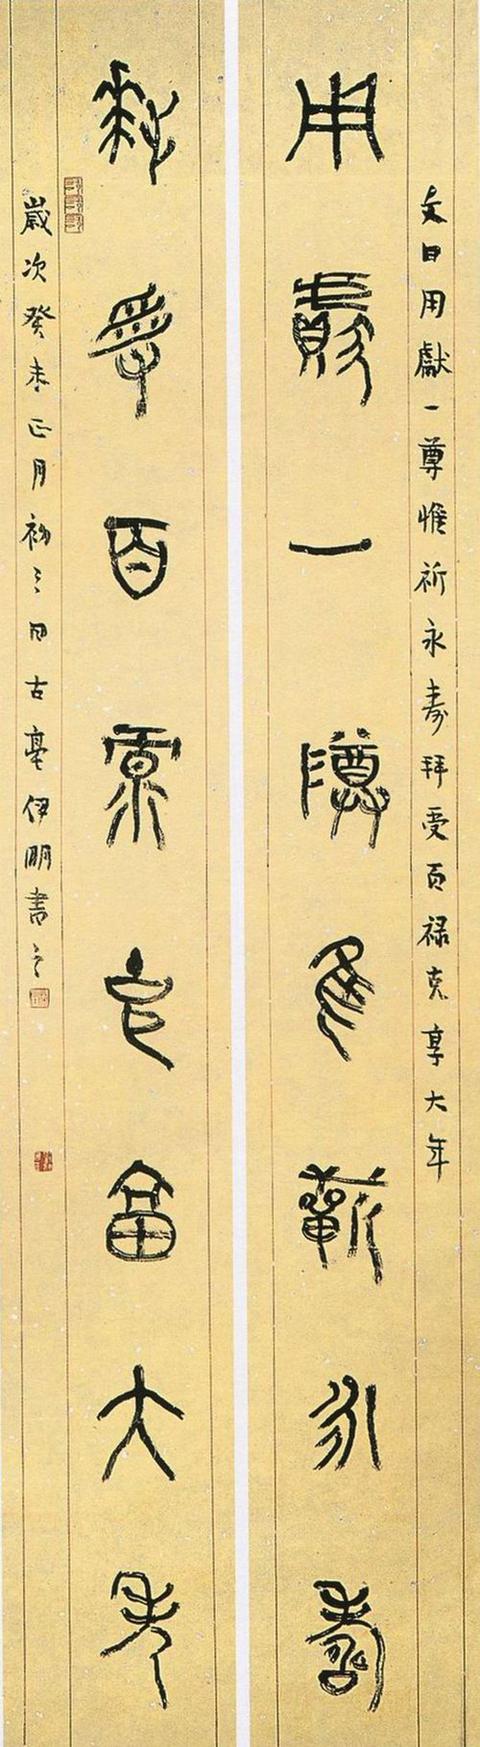 文曰用獻一尊惟祈永寿拜受百禄克享大年
用獻一尊惟祈永壽
拜受百禄克享大年
歲次癸未正月初三日古亳伊明書之